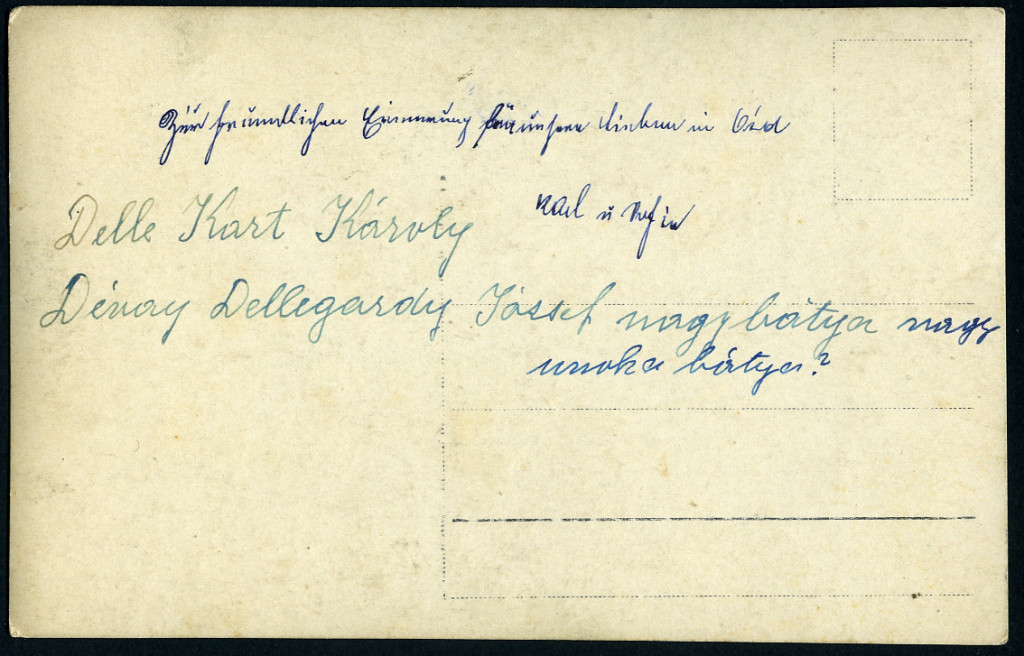 Zur freundlichen Erinnerung für unsere Lieben in Ózd
Karl u Sofie
Delle Kart Károly
Dévay Dellegardy József nagybátya nagy
unoka bátya?